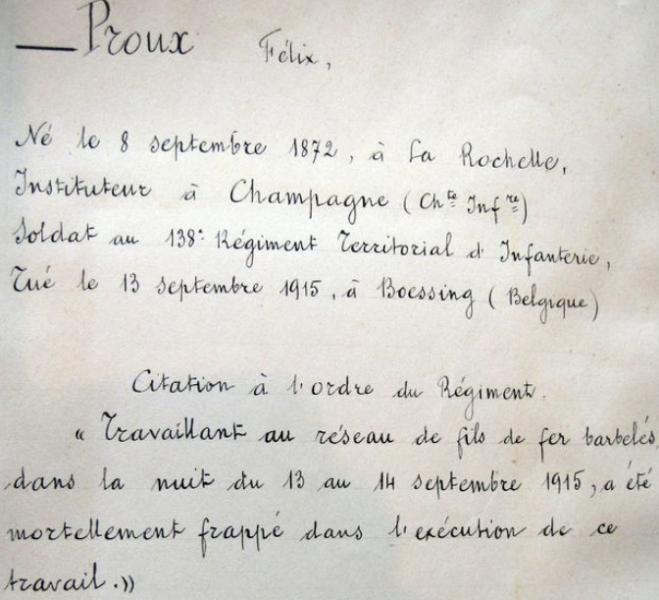 — Proux Félix,
Né le 8 septembre 1872, à La Rochelle,
Instituteur à Champagne (Ch^te Inf^re)
Soldat au 138^e Régiment Territorial d'Infanterie,
Tué le 13 septembre 1915, à Boessing (Belgique)
Citation à l'ordre du Régiment.
« Travaillant au réseau de fils de fer barbelés,
dans la nuit du 13 au 14 septembre 1915, a été
mortellement frappé dans l'exécution de ce
travail. »